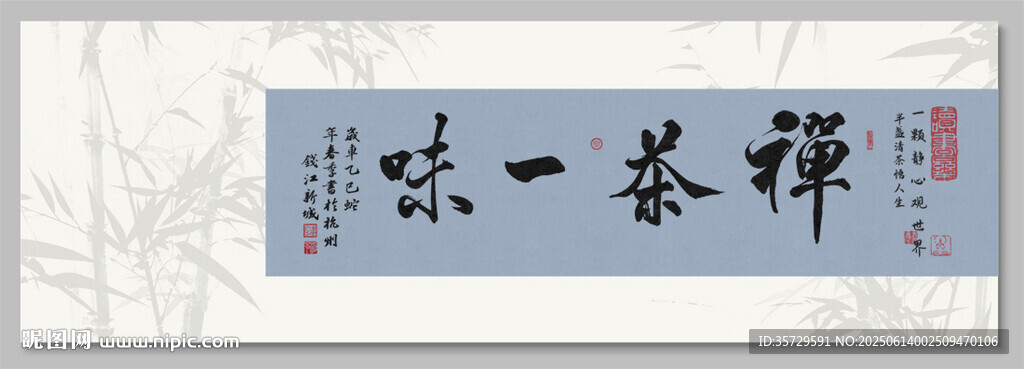 一顆靜心观世界
半盏清茶悟人生
禪茶一味
歲車乙巳蛇
年春季書於杭州
錢江新城
昵图网 www.nipic.com
ID:35729591 NO:20250614002509470106